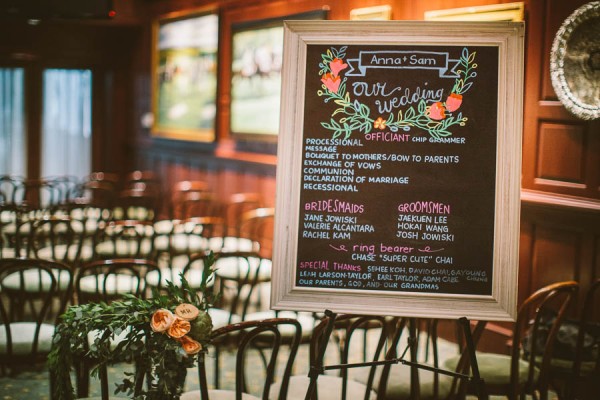 Anna + Sam
our
wedding
OFFICIANT CHIP GRAMMER
PROCESSIONAL
MESSAGE
BOUQUET TO MOTHERS/BOW TO PARENTS
EXCHANGE OF VOWS
COMMUNION
DECLARATION OF MARRIAGE
RECESSIONAL
BRIDESMAIDS
JANE JOWISKI
VALERIE ALCANTARA
RACHEL KAM
GROOMSMEN
JAEKUEN LEE
HOKAI WANG
JOSH JOWISKI
ring bearer
CHASE "SUPER CUTE" CHAI
SPECIAL THANKS SEHEE KOH, DAVID CHAI, GAYOUNG
LEAH LARSON-TAYLOR, EARL TAYLOR, ADAM CABE
OUR PARENTS, GOD, AND OUR GRANDMAS